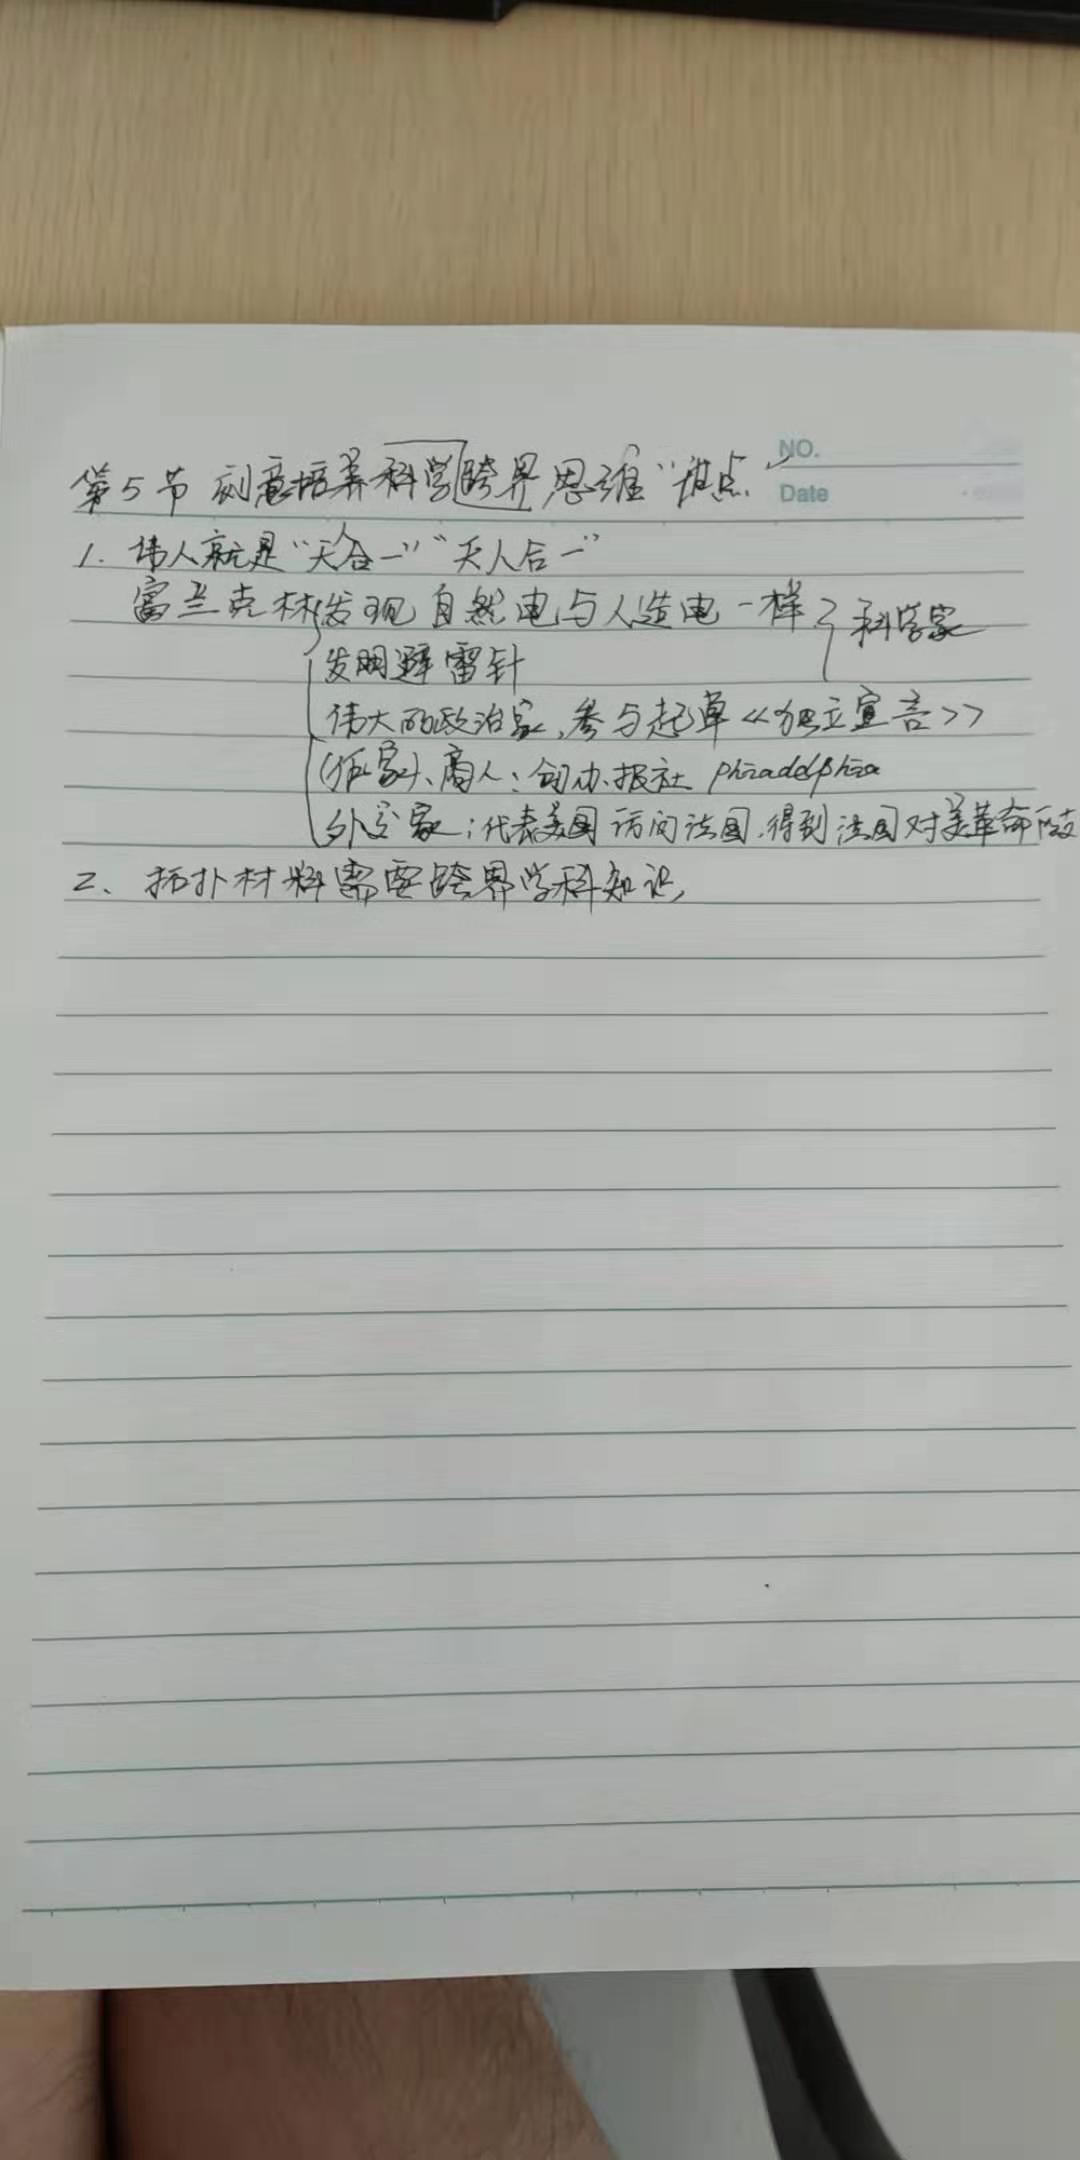 NO.
第5节 刻意培养科学跨界思维"难点"
Date
1. 伟人就是"天合一" "天人合一"
富兰克林发现自然电与人造电一样 科学家
发明避雷针
伟大的政治家,参与起草《独立宣言》
商人:创办报社 phiadelphia
外交家:代表美国访问法国,得到法国对美革命
2、拓扑材料需要跨界学科知识,